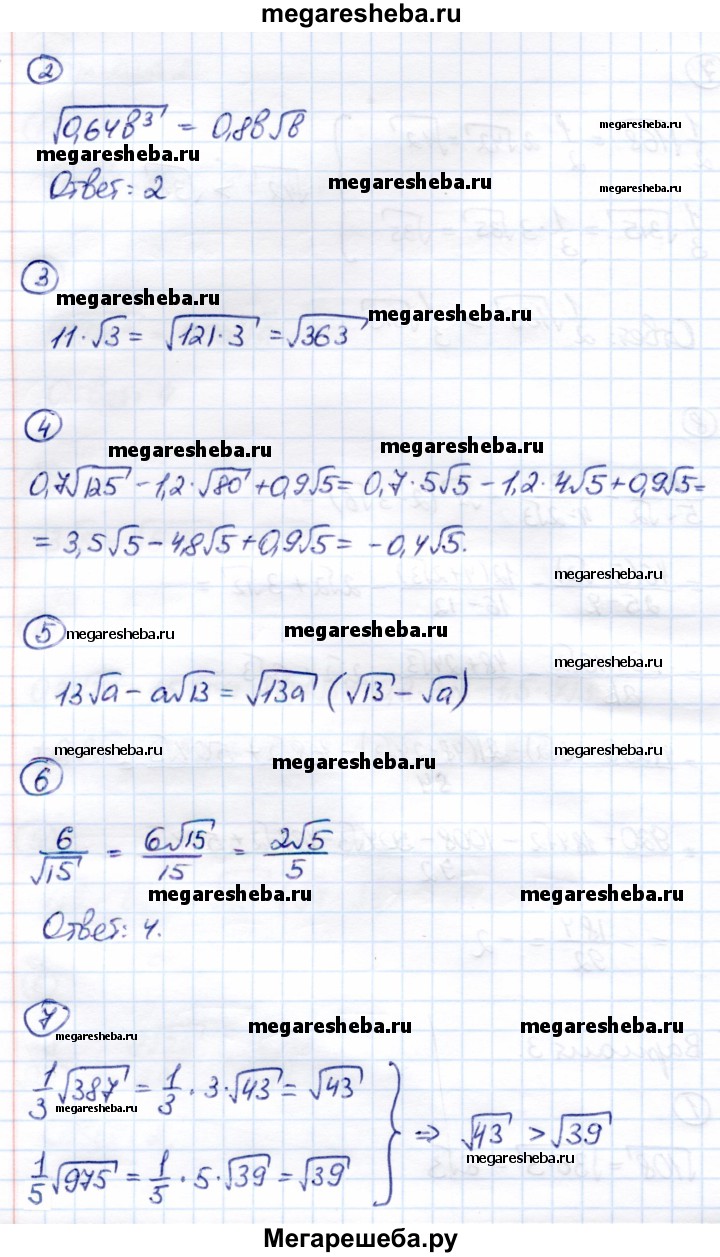 megaresheba.ru
2
√0,64b³ = 0,8b√b
megaresheba.ru
megaresheba.ru
Ответ: 2
megaresheba.ru
megaresheba.ru
3
megaresheba.ru
megaresheba.ru
11·√3 = √121·3 = √363
4
megaresheba.ru
megaresheba.ru
0,7√125 − 1,2·√80 + 0,9√5 = 0,7·5√5 − 1,2·4√5 + 0,9√5 =
= 3,5√5 − 4,8√5 + 0,9√5 = −0,4√5.
megaresheba.ru
5
megaresheba.ru
megaresheba.ru
megaresheba.ru
13√a − a√13 = √13a (√13 − √a)
megaresheba.ru
megaresheba.ru
megaresheba.ru
6
6/√15 = 6√15/15 = 2√5/5
megaresheba.ru
megaresheba.ru
Ответ: 4.
7
megaresheba.ru
megaresheba.ru
megaresheba.ru
1/3 √387 = 1/3 · 3·√43 = √43
megaresheba.ru
⇒ √43 > √39
megaresheba.ru
1/5 √975 = 1/5 · 5·√39 = √39
Мегарешеба.ру